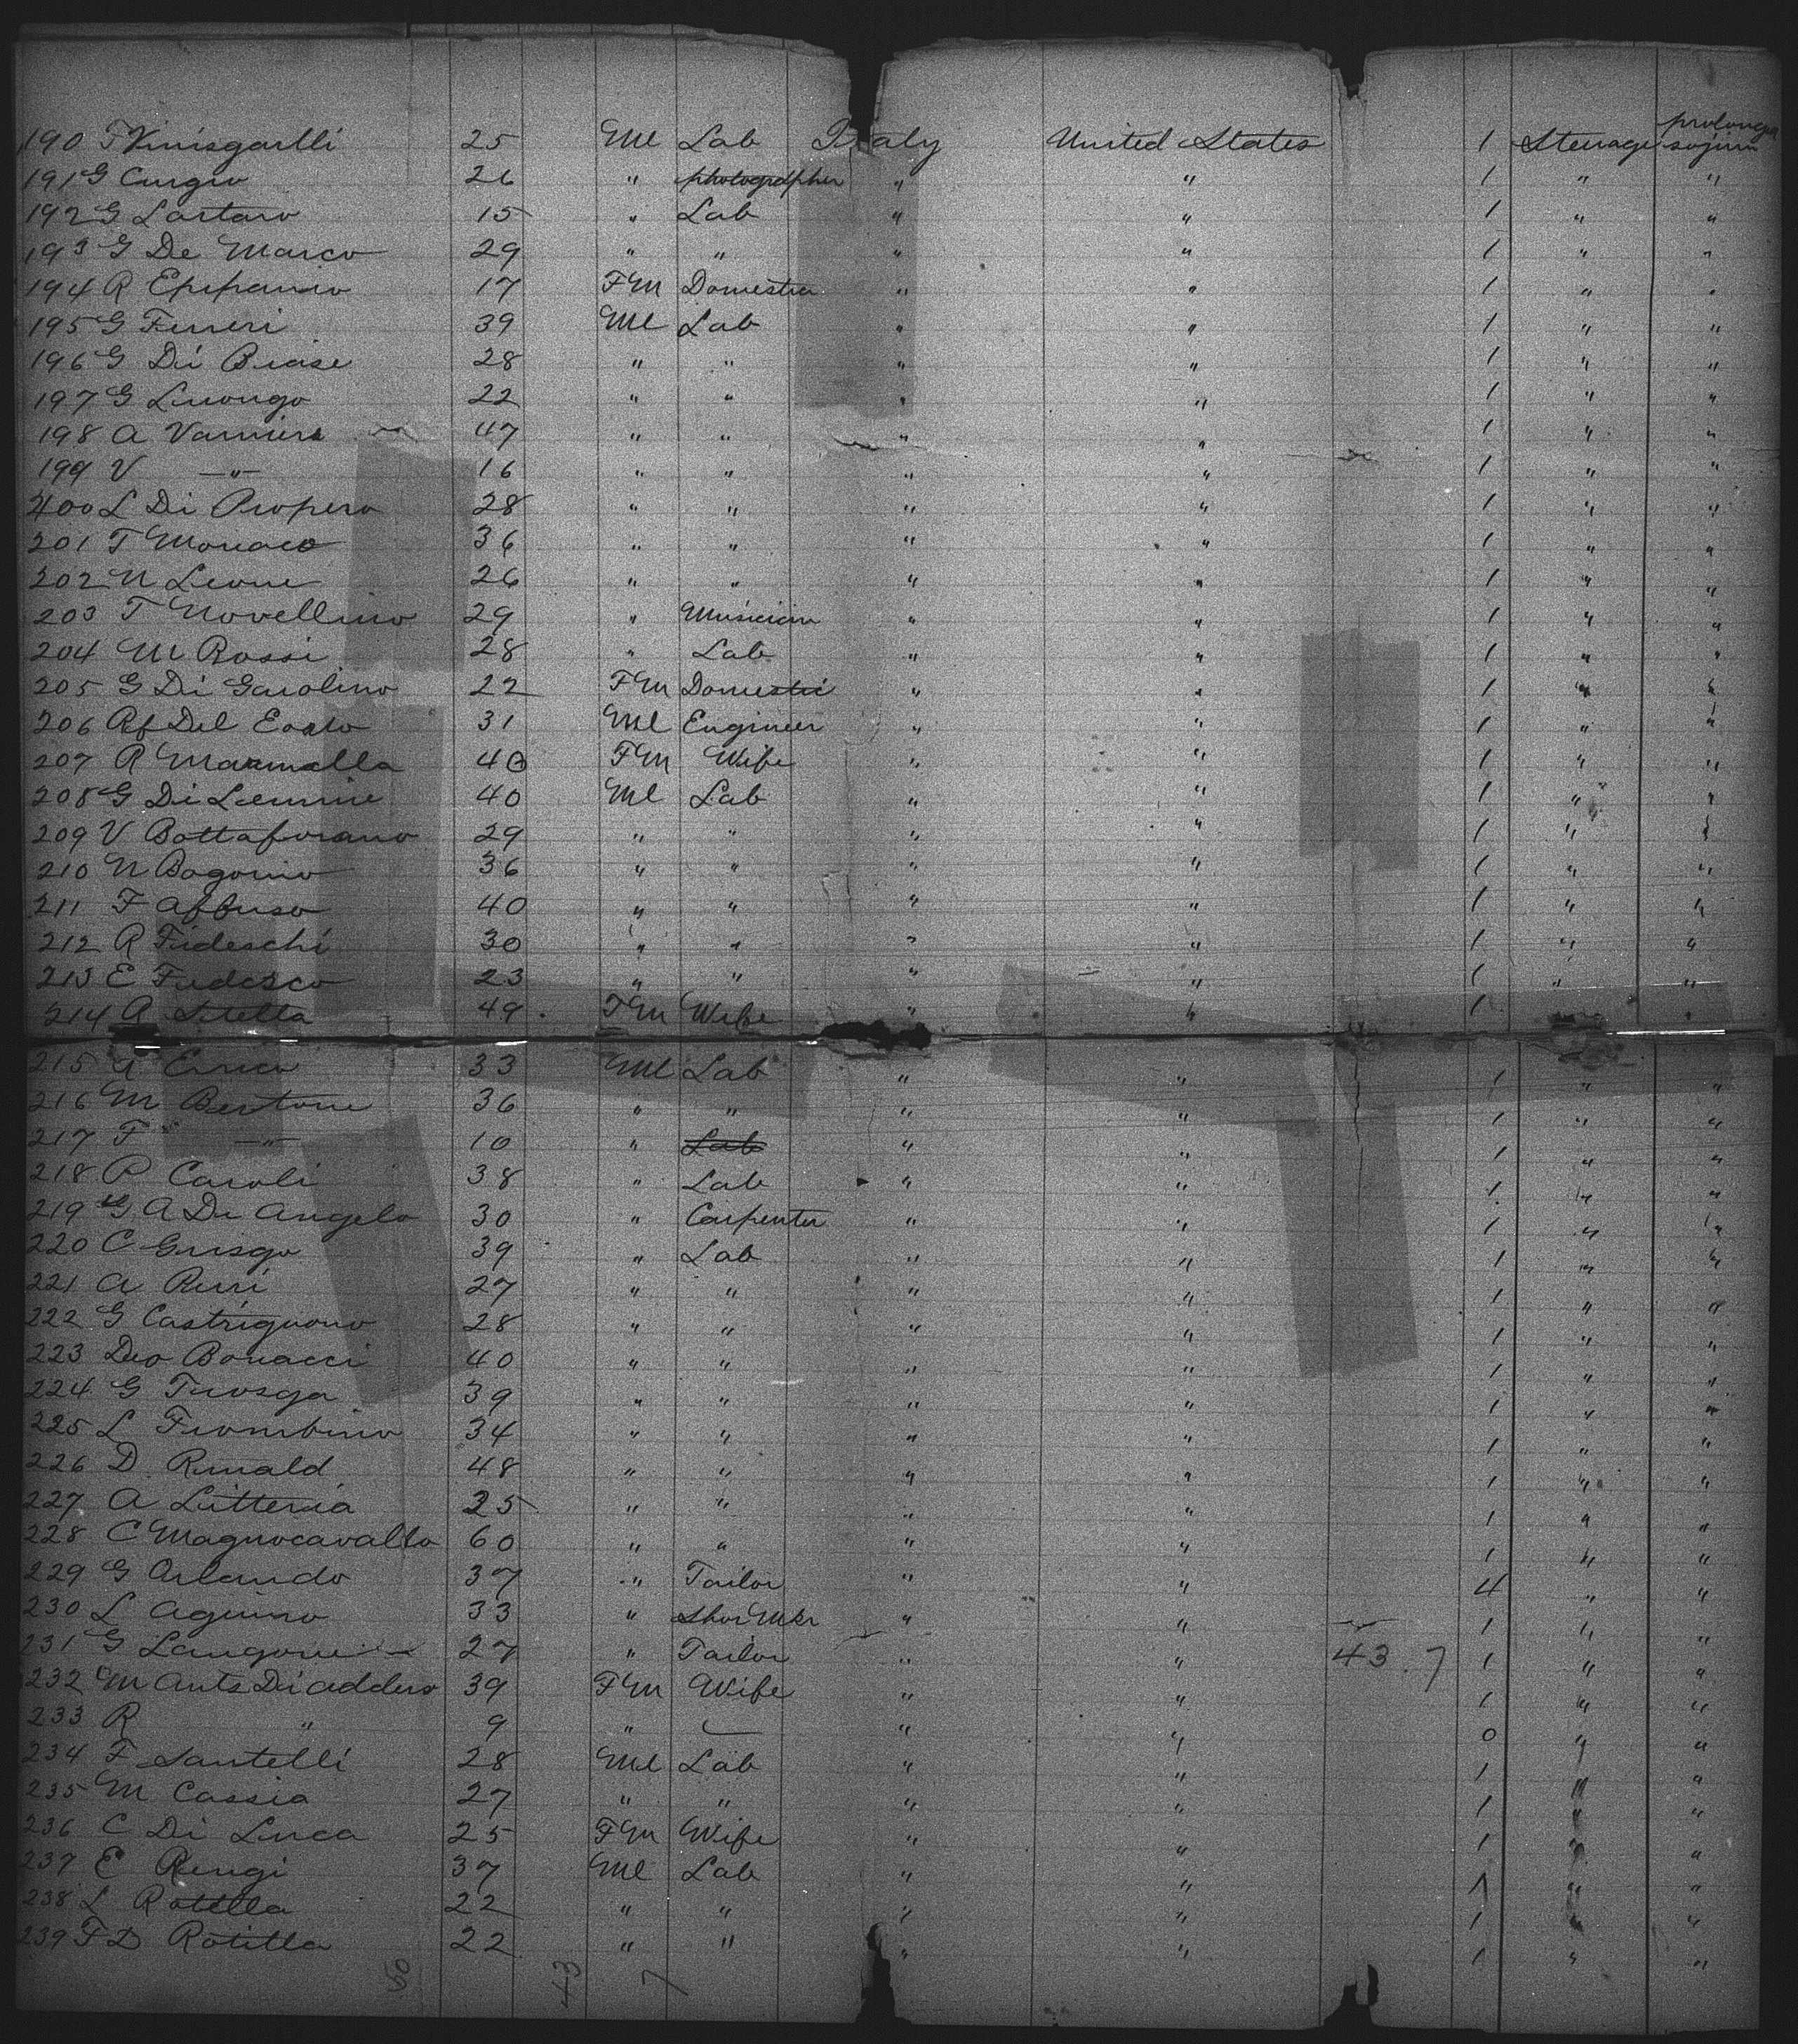 190 F Vinisgarlli 25 Ml Lab Italy United States 1 Steerage prolonged sojurn
191 G Curgio 26 " photographer " " 1 " "
192 G Lartaro 15 " Lab " " 1 " "
193 G De Marco 29 " " " " 1 " "
194 R Epipanio 17 FM Domestic " " 1 " "
195 G Ferreri 39 Ml Lab " " 1 " "
196 G Di Biase 28 " " " " 1 " "
197 G Luongo 22 " " " " 1 " "
198 A Varriera 47 " " " " 1 " "
199 V —"— 16 " " " " 1 " "
200 L Di Propero 28 " " " " 1 " "
201 T Monaco 36 " " " " 1 " "
202 N Leone 26 " " " " 1 " "
203 T Novellino 29 " Musician " " 1 " "
204 M Rossi 28 " Lab " " 1 " "
205 G Di Garolino 22 FM Domestic " " 1 " "
206 Rf Del Eosto 31 Ml Engineer " " 1 " "
207 R Marmalla 40 FM Wife " " 1 " "
208 G Di Lemmie 40 Ml Lab " " 1 " "
209 V Bottaforano 29 " " " " 1 " "
210 N Bagorio 36 " " " " 1 " "
211 F Affruso 40 " " " " 1 " "
212 R Fideschi 30 " " " " 1 " "
213 E Fudesco 23 " " " " 1 " "
214 A Litella 49 FM Wife " " 1 "
215 Errico 33 Ml Lab " " 1 " "
216 M Bertone 36 " " " " 1 " "
217 F —"— 10 " Lab " " 1 " "
218 P Caroli 38 " Lab " " 1 " "
219 G A De Angelo 30 " Carpenter " " 1 " "
220 C Grisgo 39 " Lab " " 1 " "
221 A Perri 27 " " " " 1 " "
222 G Castriguono 28 " " " " 1 " "
223 Deo Bonacci 40 " " " " 1 " "
224 G Trosga 39 " " " " 1 " "
225 L Frombino 34 " " " " 1 " "
226 D Rinald 48 " " " " 1 " "
227 A Litteria 25 " " " " 1 " "
228 C Magnocavallo 60 " " " " 1 " "
229 G Orlando 37 " Tailor " " 4 " "
230 L Aguino 33 " Shoe Mkr " " 1 " "
231 G Langone 27 " Tailor " " 43.7 1 " "
232 M Ants Di addero 39 FM Wife " " 1 " "
233 R " 9 " — " " 0 " "
234 F Santelli 28 Ml Lab " " 1 " "
235 M Cassia 27 " " " " 1 " "
236 C Di Luca 25 FM Wife " " 1 " "
237 E Rengi 37 Ml Lab " " 1 " "
238 L Rotella 22 " " " " 1 " "
239 F D Rotilla 22 " " " " 1 " "
50 43 7